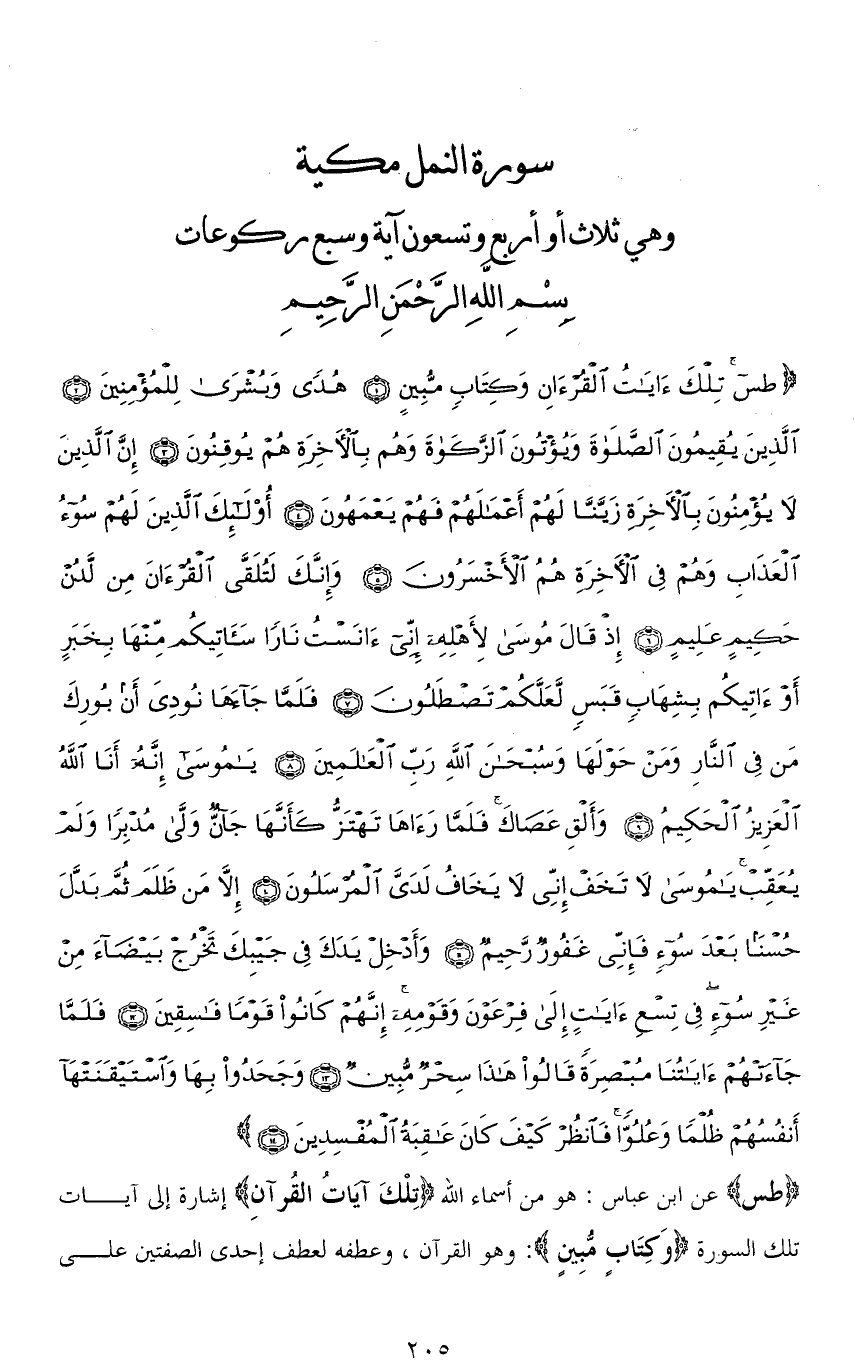 سورة النمل مكية
وهي ثلاث أو أربع وتسعون آية وسبع ركوعات
بِسْمِ اللَّهِ الرَّحْمَنِ الرَّحِيمِ
﴿طسٓۚ تِلۡكَ ءَايَٰتُ ٱلۡقُرۡءَانِ وَكِتَابٖ مُّبِينٍ ١ هُدٗى وَبُشۡرَىٰ لِلۡمُؤۡمِنِينَ ٢
ٱلَّذِينَ يُقِيمُونَ ٱلصَّلَوٰةَ وَيُؤۡتُونَ ٱلزَّكَوٰةَ وَهُم بِٱلۡأٓخِرَةِ هُمۡ يُوقِنُونَ ٣ إِنَّ ٱلَّذِينَ
لَا يُؤۡمِنُونَ بِٱلۡأٓخِرَةِ زَيَّنَّا لَهُمۡ أَعۡمَٰلَهُمۡ فَهُمۡ يَعۡمَهُونَ ٤ أُوْلَٰٓئِكَ ٱلَّذِينَ لَهُمۡ سُوٓءُ
ٱلۡعَذَابِ وَهُمۡ فِي ٱلۡأٓخِرَةِ هُمُ ٱلۡأَخۡسَرُونَ ٥ وَإِنَّكَ لَتُلَقَّى ٱلۡقُرۡءَانَ مِن لَّدُنۡ
حَكِيمٍ عَلِيمٍ ٦ إِذۡ قَالَ مُوسَىٰ لِأَهۡلِهِۦٓ إِنِّيٓ ءَانَسۡتُ نَارٗا سَـَٔاتِيكُم مِّنۡهَا بِخَبَرٍ
أَوۡ ءَاتِيكُم بِشِهَابٖ قَبَسٖ لَّعَلَّكُمۡ تَصۡطَلُونَ ٧ فَلَمَّا جَآءَهَا نُودِيَ أَنۢ بُورِكَ
مَن فِي ٱلنَّارِ وَمَنۡ حَوۡلَهَا وَسُبۡحَٰنَ ٱللَّهِ رَبِّ ٱلۡعَٰلَمِينَ ٨ يَٰمُوسَىٰٓ إِنَّهُۥٓ أَنَا ٱللَّهُ
ٱلۡعَزِيزُ ٱلۡحَكِيمُ ٩ وَأَلۡقِ عَصَاكَۚ فَلَمَّا رَءَاهَا تَهۡتَزُّ كَأَنَّهَا جَآنّٞ وَلَّىٰ مُدۡبِرٗا وَلَمۡ
يُعَقِّبۡۚ يَٰمُوسَىٰ لَا تَخَفۡ إِنِّي لَا يَخَافُ لَدَيَّ ٱلۡمُرۡسَلُونَ ١٠ إِلَّا مَن ظَلَمَ ثُمَّ بَدَّلَ
حُسۡنَۢا بَعۡدَ سُوٓءٖ فَإِنِّي غَفُورٞ رَّحِيمٞ ١١ وَأَدۡخِلۡ يَدَكَ فِي جَيۡبِكَ تَخۡرُجۡ بَيۡضَآءَ مِنۡ
غَيۡرِ سُوٓءٖۖ فِي تِسۡعِ ءَايَٰتٍ إِلَىٰ فِرۡعَوۡنَ وَقَوۡمِهِۦٓۚ إِنَّهُمۡ كَانُواْ قَوۡمٗا فَٰسِقِينَ ١٢ فَلَمَّا
جَآءَتۡهُمۡ ءَايَٰتُنَا مُبۡصِرَةٗ قَالُواْ هَٰذَا سِحۡرٞ مُّبِينٞ ١٣ وَجَحَدُواْ بِهَا وَٱسۡتَيۡقَنَتۡهَآ
أَنفُسُهُمۡ ظُلۡمٗا وَعُلُوّٗاۚ فَٱنظُرۡ كَيۡفَ كَانَ عَٰقِبَةُ ٱلۡمُفۡسِدِينَ ١٤﴾
﴿طس﴾ عن ابن عباس : هو من أسماء الله ﴿تِلْكَ آيَاتُ القُرآنِ﴾ إشارة إلى آيـــات
تلك السورة ﴿وَكِتَابٍ مُّبِينٍ﴾: وهو القرآن ، وعطفه لعطف إحدى الصفتين علـــى
٢٠٥